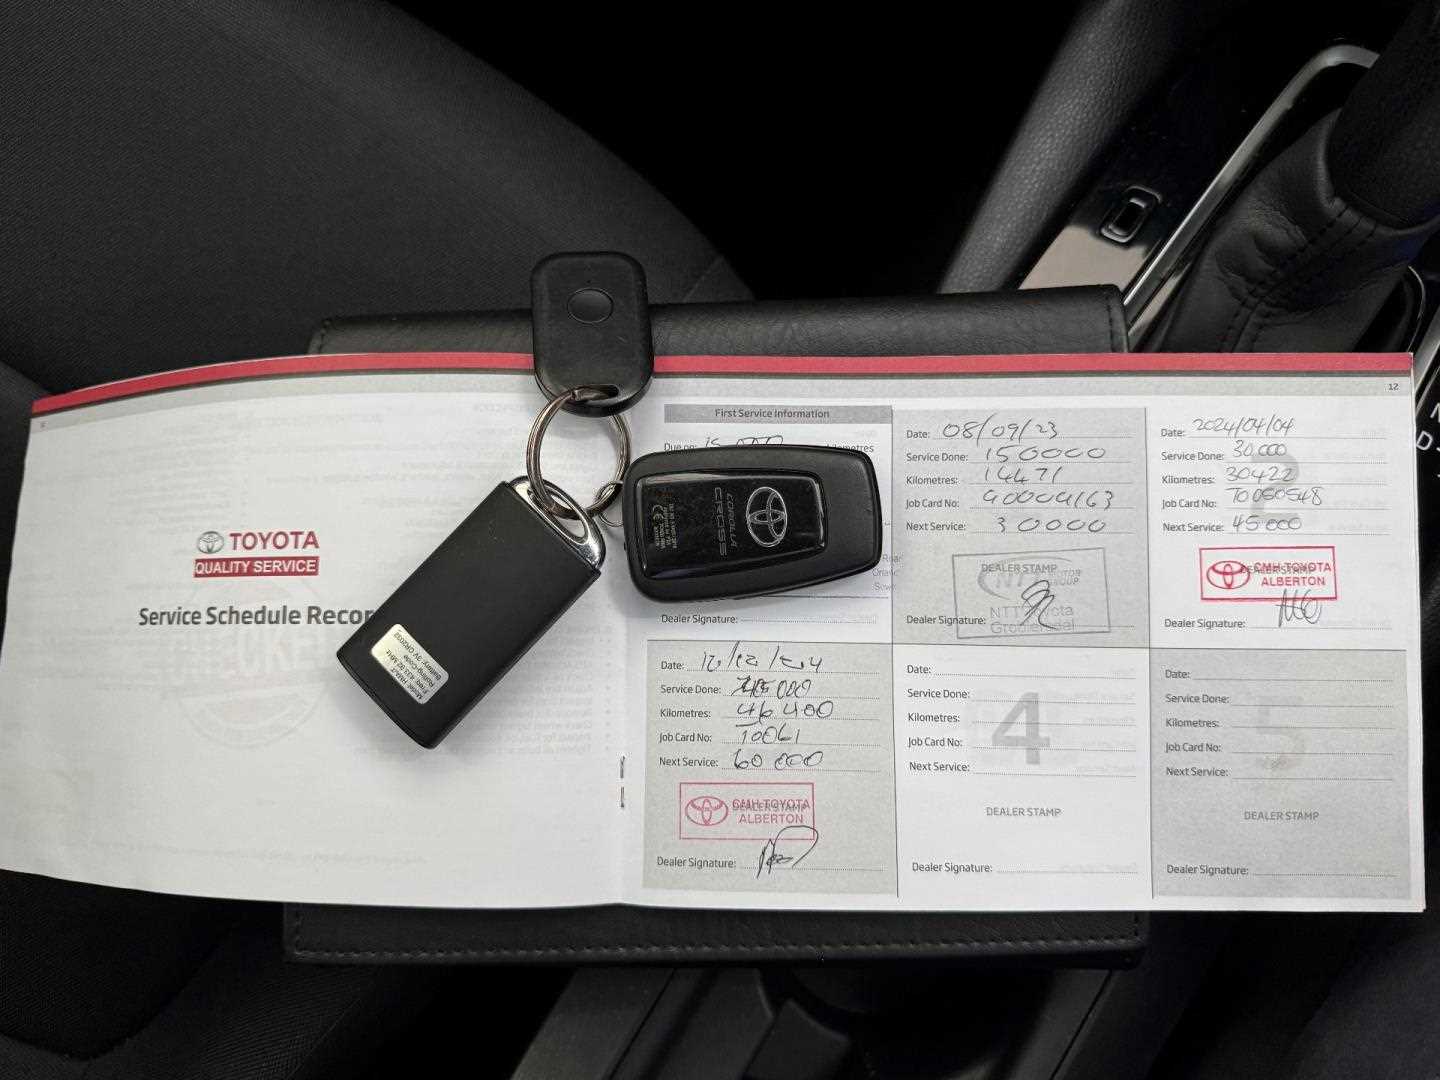 12
TOYOTA
QUALITY SERVICE
Service Schedule Recor
First Service Information
Due on: 15 000 kilometres
Dealer Signature:
Date: 08/09/23
Service Done: 150000
Kilometres: 14471
Job Card No: 90004163
Next Service: 30000
DEALER STAMP
MOTOR
GROUP
NTT Toyota
Groblersdal
Dealer Signature:
2
Date: 2024/04/04
Service Done: 30.000
Kilometres: 30422
Job Card No: T0050548
Next Service: 45000
DEALER STAMP
CMH TOYOTA
ALBERTON
Dealer Signature:
Date: 12/12/24
Service Done: 45 000
Kilometres: 46 400
Job Card No: T0061
Next Service: 60 000
DEALER STAMP
CMH TOYOTA
ALBERTON
Dealer Signature:
4
Date:
Service Done:
Kilometres:
Job Card No:
Next Service:
DEALER STAMP
Dealer Signature:
5
Date:
Service Done:
Kilometres:
Job Card No:
Next Service:
DEALER STAMP
Dealer Signature:
COROLLA
CROSS
CE
Freq: 433.92 MHz
Rolling-Code
Battery: 3V CR2032